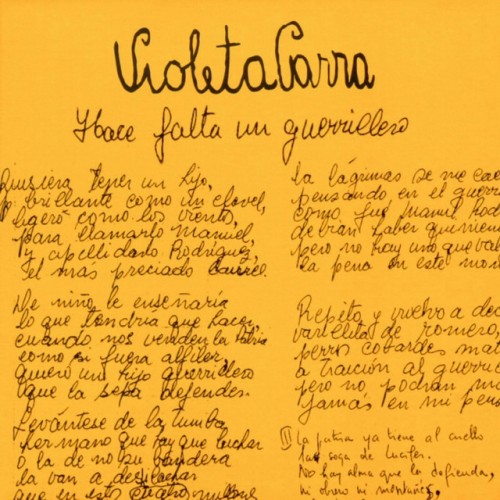 Violeta Parra
Hace falta un guerrillero
Quisiera tener un hijo,
brillante como un clavel,
ligero como los vientos,
para llamarlo Manuel,
y apellidarlo Rodríguez,
el más preciado laurel.
De niño le enseñaría
lo que tendría que hacer
cuando nos venden la patria
como si fuera alfiler,
quiero un hijo guerrillero
que la sepa defender.
Levántese de la tumba
hermano que hay que luchar
o la de no su bandera
la van a
que en esto cuatro
La lágrimas se me cae
pensando en el guerri
como fue Manuel Rod
debran haber
pero no hay uno que val
la pena en este mom
Repito y vuelvo a dec
varillita de romero,
perros cobardes mat
a traición al guerri
pero no podrán m
jamás en mi pens
II La patria ya tiene al cuello
la soga de Lucifer.
No hay alma que la defienda,
ni obrero ni montañés,